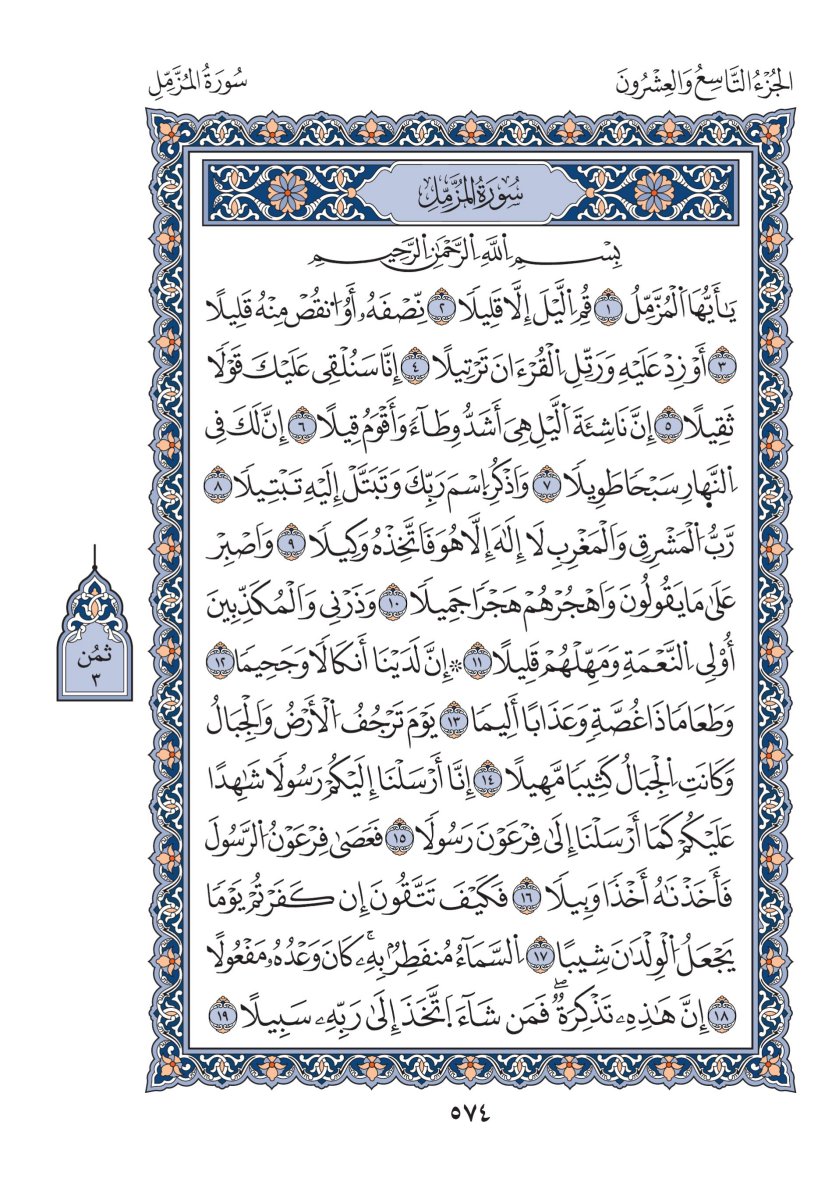 الجُزْءُ التَّاسِعُ وَالعِشْرُونَ
سُورَةُ المُزَّمِّلِ
سُورَةُ المُزَّمِّلِ
بِسْمِ اِللَّهِ اِلرَّحْمَٰنِ اِلرَّحِيمِ
يَٰأَيُّهَا اَلْمُزَّمِّلُ ١ قُمِ اِلَّيْلَ إِلَّا قَلِيلًا ٢ نِّصْفَهُۥ أَوُ اُنقُصْ مِنْهُ قَلِيلًا
٣ أَوْ زِدْ عَلَيْهِ وَرَتِّلِ اِلْقُرْءَانَ تَرْتِيلًا ٤ إِنَّا سَنُلْقِي عَلَيْكَ قَوْلًا
ثَقِيلًا ٥ إِنَّ نَاشِئَةَ اَلَّيْلِ هِيَ أَشَدُّ وِطَآءً وَأَقْوَمُ قِيلًا ٦ إِنَّ لَكَ فِي
اِلنَّهارِ سَبْحًا طَوِيلًا ٧ وَاَذْكُرِ اِسْمَ رَبِّكَ وَتَبَتَّلْ إِلَيْهِ تَبْتِيلًا ٨
رَّبُّ اُلْمَشْرِقِ وَالْمَغْرِبِ لَا إِلَٰهَ إِلَّا هُوَ فَاَتَّخِذْهُ وَكِيلًا ٩ وَاَصْبِرْ
عَلَىٰ مَا يَقُولُونَ وَاَهْجُرْهُمْ هَجْرًا جَمِيلًا ١٠ وَذَرْنِي وَاَلْمُكَذِّبِينَ
أُوْلِي اِلنَّعْمَةِ وَمَهِّلْهُمْ قَلِيلًا ١١ ۞ إِنَّ لَدَيْنَا أَنكَالًا وَجَحِيمًا ١٢
وَطَعَامًا ذَا غُصَّةٍ وَعَذَابًا أَلِيمًا ١٣ يَوْمَ تَرْجُفُ اُلْأَرْضُ وَاَلْجِبَالُ
وَكَانَتِ اِلْجِبَالُ كَثِيبًا مَّهِيلًا ١٤ إِنَّا أَرْسَلْنَا إِلَيْكُمْ رَسُولًا شَٰهِدًا
عَلَيْكُمْ كَمَا أَرْسَلْنَا إِلَىٰ فِرْعَوْنَ رَسُولًا ١٥ فَعَصَىٰ فِرْعَوْنُ اُلرَّسُولَ
فَأَخَذْنَٰهُ أَخْذًا وَبِيلًا ١٦ فَكَيْفَ تَتَّقُونَ إِن كَفَرْتُمْ يَوْمًا
يَجْعَلُ اُلْوِلْدَٰنَ شِيبًا ١٧ اَلسَّمَآءُ مُنفَطِرٌۢ بِهِۦۚ كَانَ وَعْدُهُۥ مَفْعُولًا
١٨ إِنَّ هَٰذِهِۦ تَذْكِرَةٌۖ فَمَن شَآءَ اَتَّخَذَ إِلَىٰ رَبِّهِۦ سَبِيلًا ١٩
ثُمُن
٣
٥٧٤